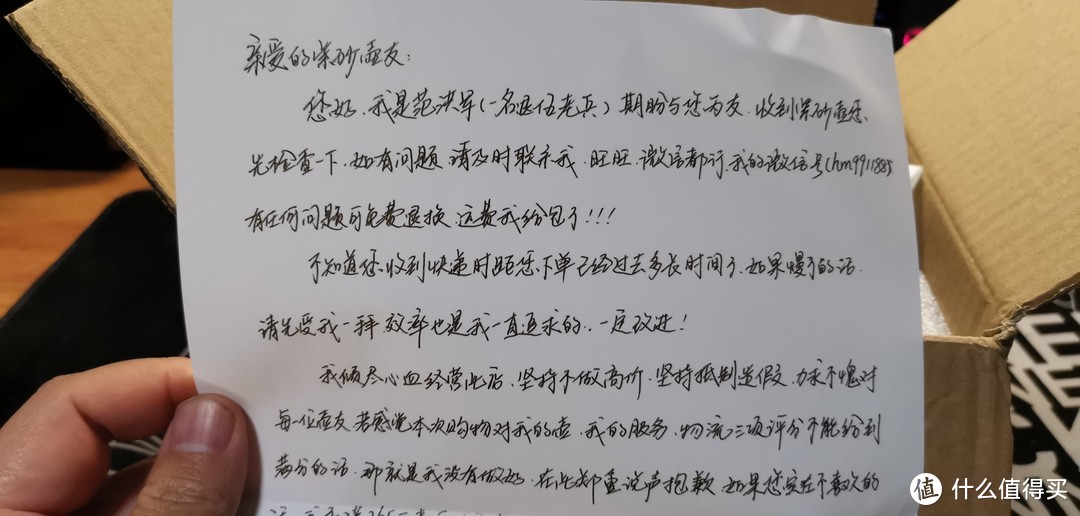 亲爱的紫砂壶友：
您好、我是范洪军(一名退伍老兵）期盼与您为友、收到紫砂壶您、
先检查一下、如有问题 请及时联系我、旺旺、微信都行、我的微信号
有任何问题可免费退换、运费我给包了!!!
不知道您、收到快递时距您、下单已经过去多长时间了、如果慢了的话、
请先受我一拜 效率也是我一直追求的、一定改进!
我倾尽心血经营此店、坚持不做高价、坚持抵制造假、力求不愧对
每一位壶友 若感觉本次购物对我的壶、我的服务、物流三项评分不能给到
满分的话、那就是我没有做好、在此郑重说声抱歉 如果您实在不喜欢的
值 什么值得买